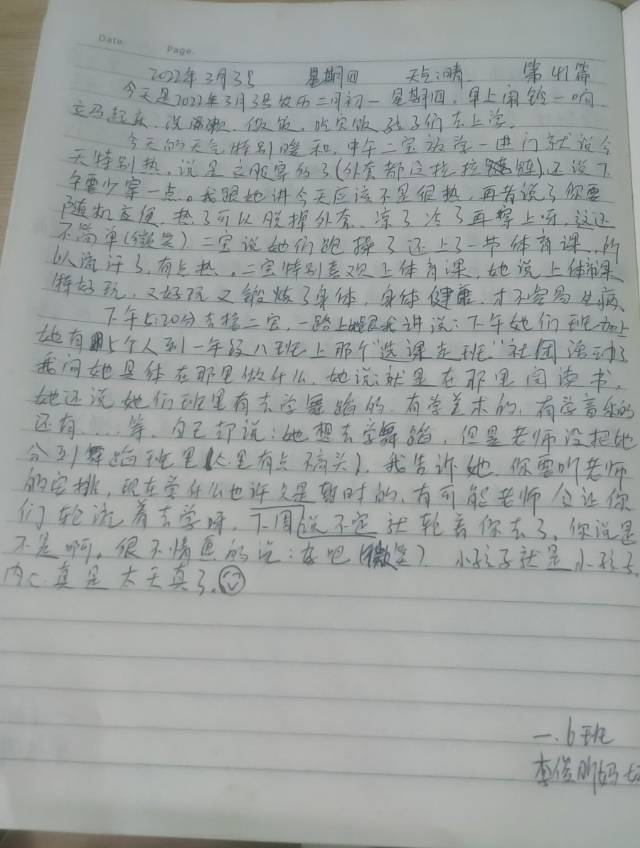 Date.    Page.
2022年3月3号    星期四    天气:晴    第41篇
今天是2022年3月3号农历二月初一 星期四,早上闹铃一响
立马起床,洗漱,做饭,吃完饭孩子们去上学。
今天的天气特别暖和,中午二宝放学一进门就说今
天特别热,说是衣服穿的多(外套都没拉拉链),还说下
午要少穿一点。我跟她讲今天应该不是很热,再者说了你要
随机应便,热了可以脱掉外套,凉了冷了再穿上呀,这还
不简单(微笑)二宝说她们跑操了还上了一节体育课,所
以流汗了,有点热。二宝特别喜欢上体育课,她说上体育课
特好玩,又好玩又锻炼了身体,身体健康,才不容易生病
下午5:20分去接二宝,一路上跟我讲说:下午她们班加上
她有5个人到一年级八班上那个"选课走班"社团活动了
我问她具体在那里做什么,她说:就是在那里阅读书,
她还说她们班里有去学舞蹈的,有学美术的,有学音乐的
还有....等,自己却说:她想去学舞蹈,但是老师没把她
分到舞蹈班里(心里有点不高兴)。我告诉她,你要听老师
的安排,现在学什么也许只是暂时的,有可能老师会让你
们轮流着去学呀,下周说不定就轮着你去了,你说是
不是啊。很不情愿的说:好吧(微笑) 小孩子就是小孩子,
内心真是太天真了。
一.6班